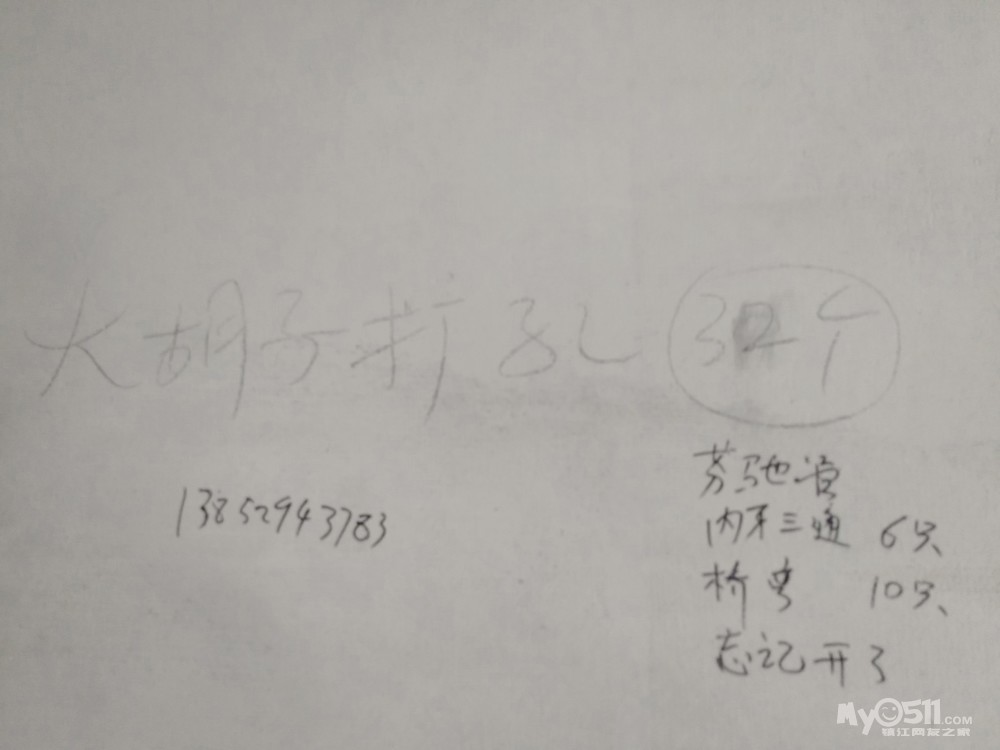 大胡子打孔 32个
13852943783
芬驰管
内牙三通 6只、
桥弯 10只、
忘记开了
My0511.COM
镇江网友之家